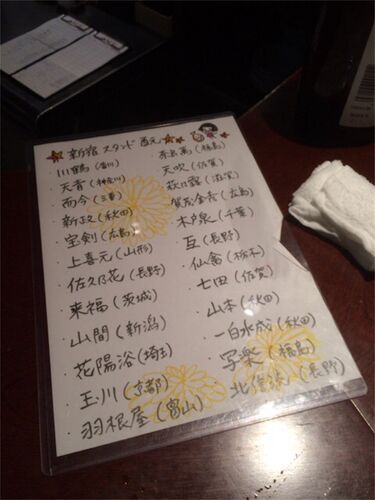 新宿スタンド 酛
・川鶴(香川)
・天青(神奈川)
・而今(三重)
・新政(秋田)
・宝剣(広島)
・上喜元(山形)
・佐久乃花(長野)
・来福(茨城)
・山間(新潟)
・花陽浴(埼玉)
・玉川(京都)
・羽根屋(富山)
・奈良萬(福島)
・天吹(佐賀)
・萩乃露(滋賀)
・賀茂金秀(広島)
・木戸泉(千葉)
・亙(長野)
・仙禽(栃木)
・七田(佐賀)
・山本(秋田)
・一白水成(秋田)
・写楽(福島)
・北信流(長野)